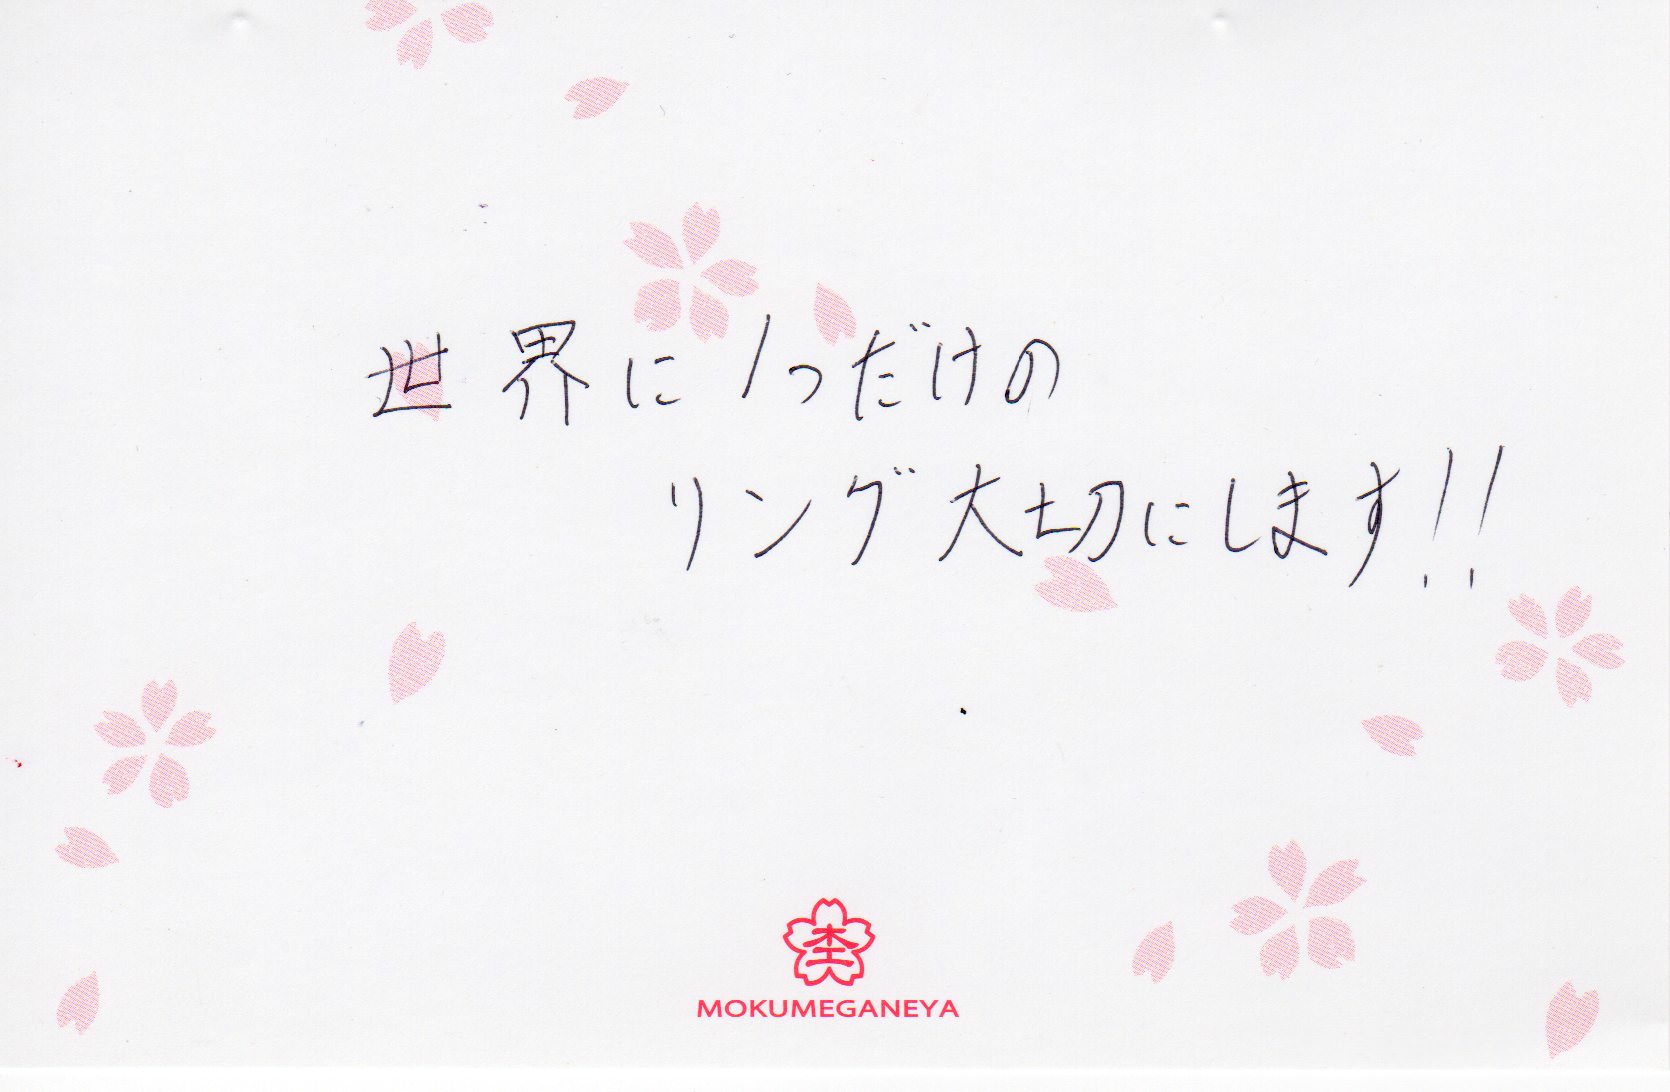 世界に1つだけの
リング大切にします!!
MOKUMEGANEYA